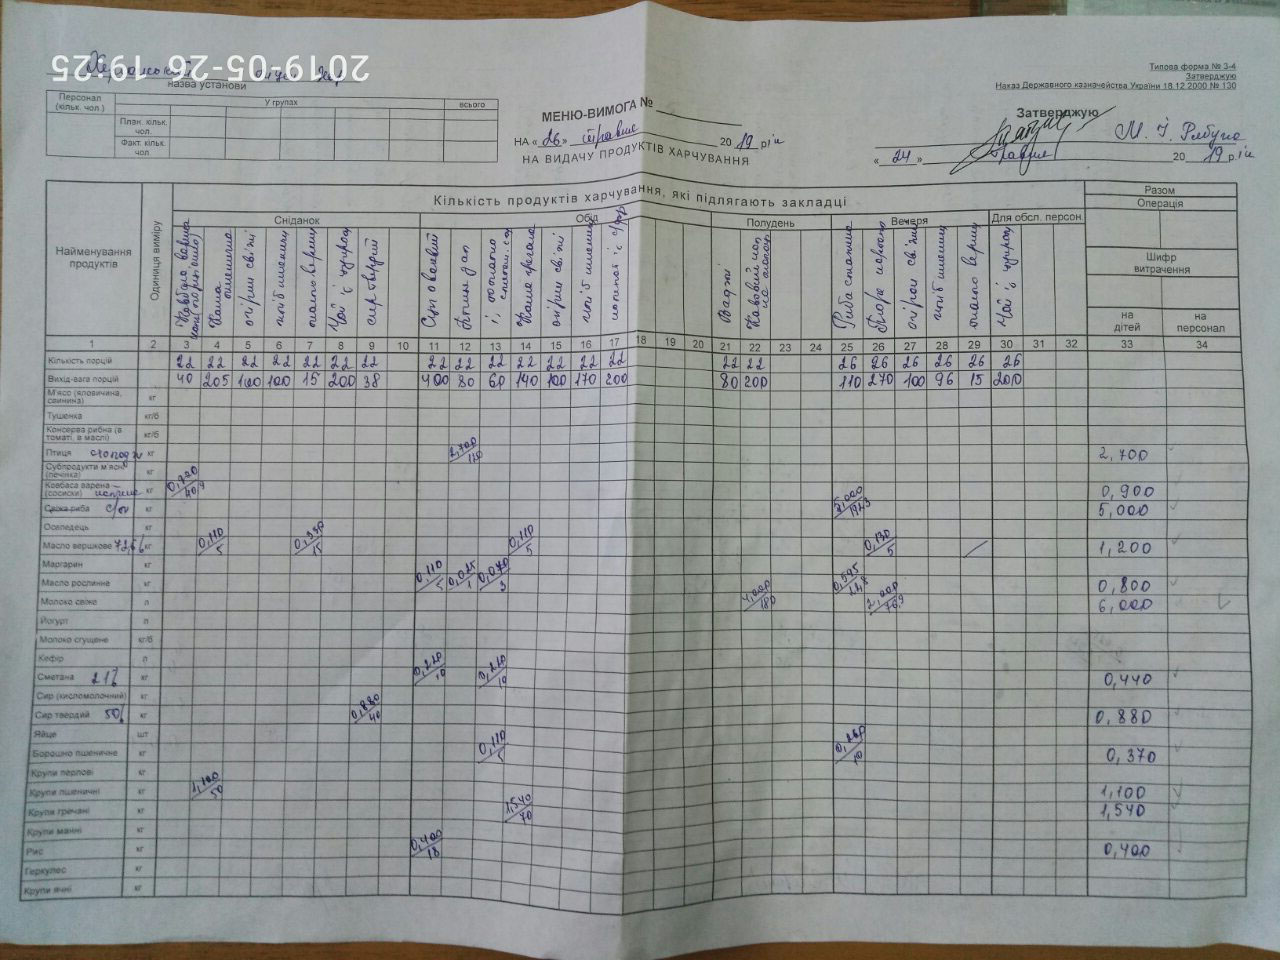 2019-05-26 19:25
назва установи
Типова форма № З-4
Затверджую
Наказ Державного казначейства України 18.12.2000 № 130
Персонал (кільк. чол.)
У групах
всього
План. кільк. чол.
Факт. кільк. чол.
МЕНЮ-ВИМОГА №
НА «26» травня 2019 рік
НА ВИДАЧУ ПРОДУКТІВ ХАРЧУВАННЯ
Затверджую
«24» травня 2019 рік
Найменування продуктів
Одиниця виміру
Кількість продуктів харчування, які підлягають закладці
Разом
Операція
Сніданок
Обід
Полудень
Вечеря
Для обсл. персон.
Шифр витрачення
на дітей
на персонал
Каша пшенична
огірки свіжі
хліб пшениці
масло вершк
Чай із цукром
сир твердий
Суп
Каша гречана
огірки свіжі
хліб пшениці
Кавовий нап
Риба
Пюре
огірки свіжі
хліб пшениц
масло вершк
Чай із цукром
1 2 3 4 5 6 7 8 9 10 11 12 13 14 15 16 17 18 19 20 21 22 23 24 25 26 27 28 29 30 31 32 33 34
Кількість порцій 22 22 22 22 22 22 22 22 22 22 22 22 22 22 22 22 26 26 26 26 26 26
Вихід-вага порцій 40 205 100 100 15 200 38 400 80 60 140 100 170 200 80 200 110 270 100 96 15 200
М'ясо (яловичина, свинина) кг
Тушенка кг/б
Консерва рибна (в томаті, в маслі) кг/б
Птиця кг 2,700 2,700
Субпродукти м'ясні (печінка) кг
Ковбаса варена (сосиски) кг 0,900
Свіжа риба с/м кг 5,000 5,000
Оселедець кг
Масло вершкове 72,5% кг 0,110/5 0,330/15 0,110/5 0,130/5 1,200
Маргарин кг
Масло рослинне кг 0,110/5 0,070/3 0,595 0,800
Молоко свіже л 4,000/180 2,000/76,9 6,000
Йогурт л
Молоко сгущене кг/б
Кефір л
Сметана 21% кг 0,220/10 0,220/10 0,440
Сир (кисломолочний) кг
Сир твердий 50% кг 0,880/40 0,880
Яйце шт
Борошно пшеничне кг 0,110/5 0,260/10 0,370
Крупи перлові кг
Крупи пшеничні кг 1,100/50 1,100
Крупи гречані кг 1,540/70 1,540
Крупи манні кг
Рис кг 0,400/18 0,400
Геркулес кг
Крупи ячні кг